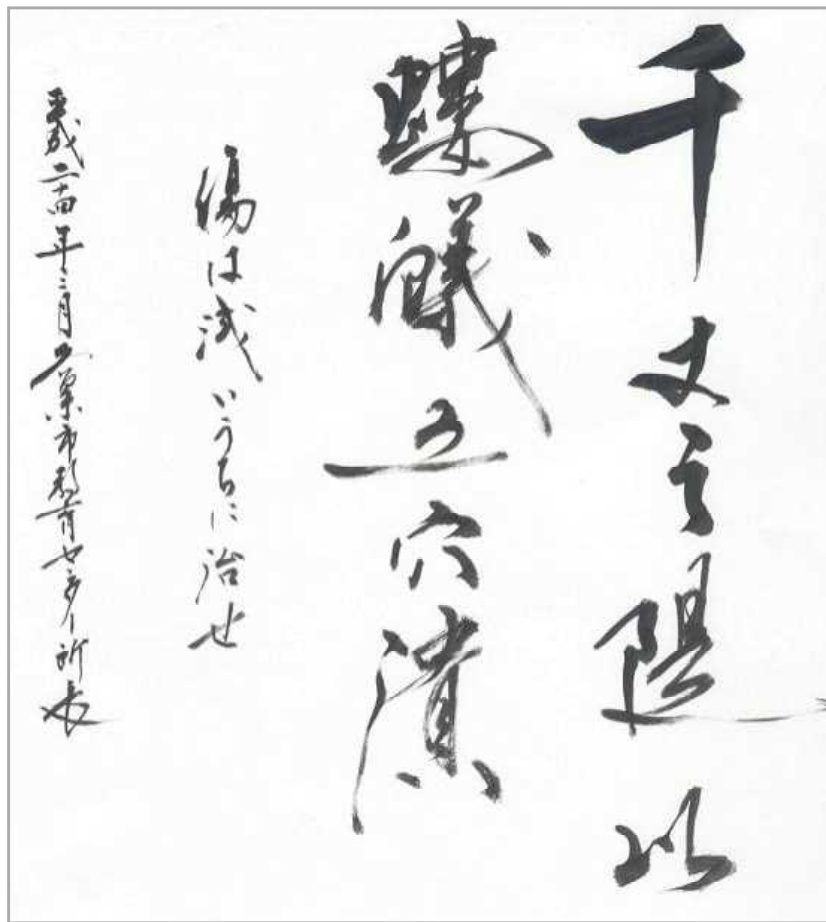 千丈之隄以
螻蟻之穴潰
傷は浅いうちに治せ
平成二十四年三月 市教育センター所長